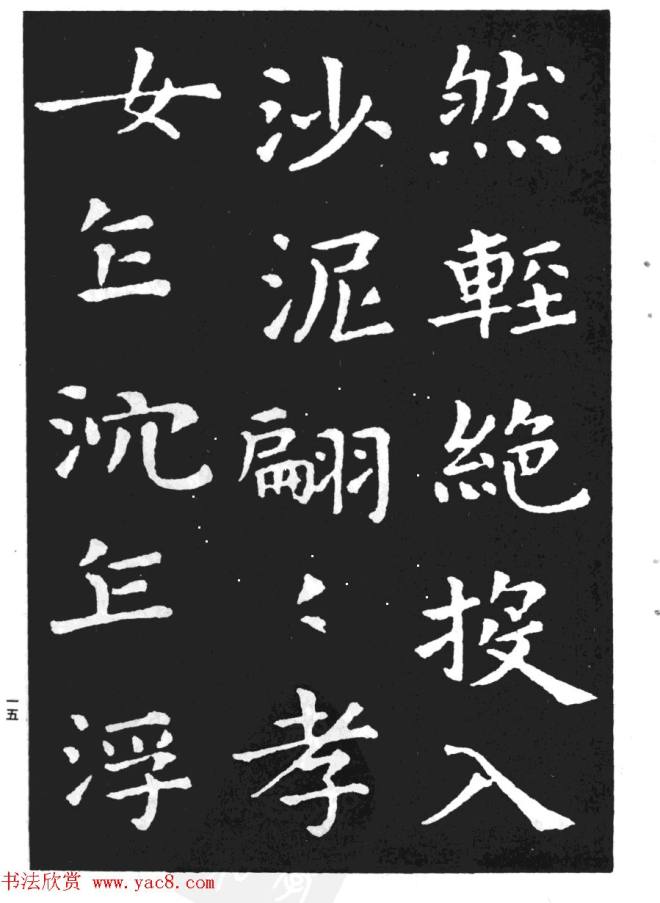 然輕絶投入
沙泥翩〻孝
女乍沉乍浮
一五
书法欣赏 www.yac8.com